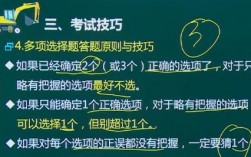 三、考试技巧
③
4.多项选择题答题原则与技巧
◆如果已经确定2个（或3个）正确的选项了，对于只
略有把握的选项最好不选。
◆如果只能确定1个正确选项，对于略有把握的选项
可以选择1个，但别超过1个。
◆如果对每个选项的正误都没有把握，一定要猜1个